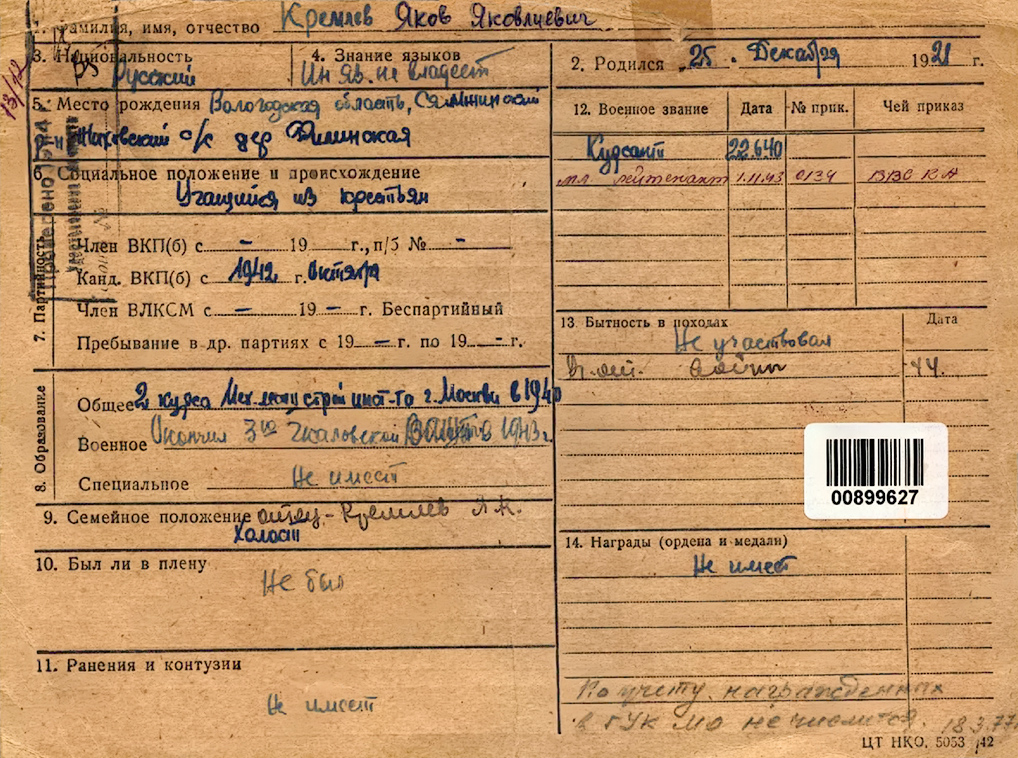 1. Фамилия, имя, отчество Кремлев Яков Яковлевич
3. Национальность Русский
4. Знание языков Ин яз. не владеет
2. Родился „25" Декабря 1921 г.
5. Место рождения Вологодская область,
р-н дер Филинская
6. Социальное положение и происхождение
Учащийся из крестьян
7. Партийность
Член ВКП(б) с – 19 г., п/б № –
Канд. ВКП(б) с 1942 г. октября
Член ВЛКСМ с – 19 – г. Беспартийный
Пребывание в др. партиях с 19 – г. по 19 – г.
8. Образование
Общее 2 курса инст-та г. Москвы в 1940
Военное Окончил 3ю Чкаловскую 1943 г.
Специальное Не имеет
9. Семейное положение отец – Кремлев Я.К.
Холост
10. Был ли в плену
Не был
11. Ранения и контузии
Не имеет
12. Военное звание Дата № прик. Чей приказ
Курсант 22.6.40
мл. лейтенант 1.11.43 0134 ВВС КА
13. Бытность в походах Дата
Не участвовал
войны 44.
00899627
14. Награды (ордена и медали)
Не имеет
По учету награжденных
в ГУК МО не числится. 18.3.77
ЦТ НКО. 5053 42